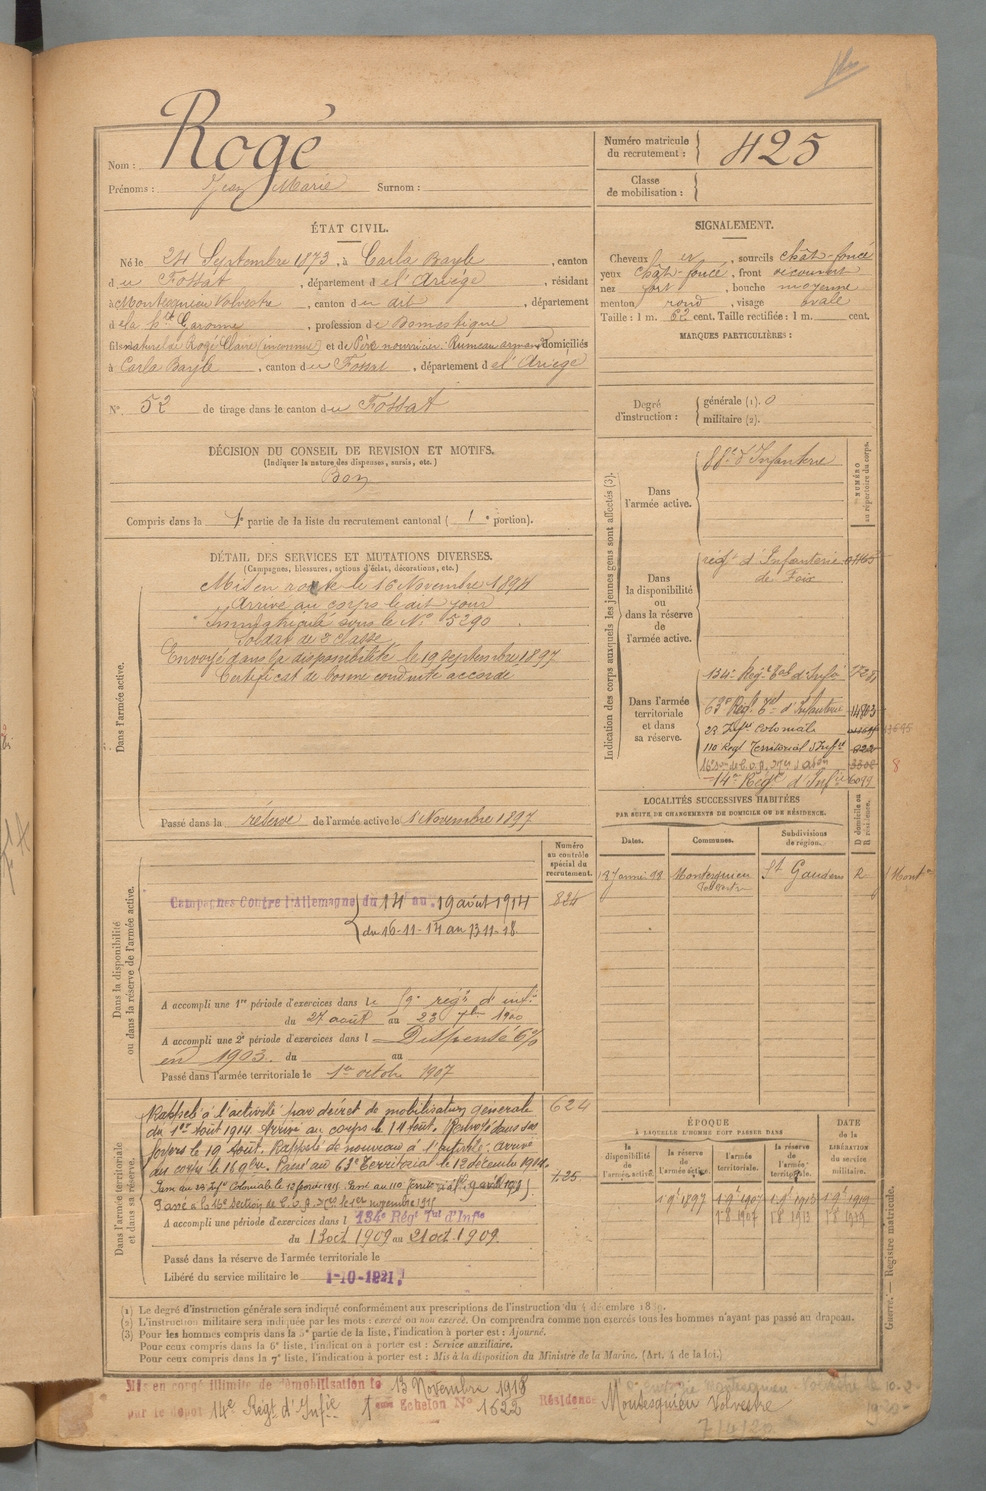 Nom : Rogé
Prénoms : Jean Marie Surnom :
Numéro matricule du recrutement : 425
Classe de mobilisation :
ÉTAT CIVIL.
Né le 24 Septembre 1873, à Carla Bayle, canton
du Fossat, département de l'Ariège, résidant
à Montesquieu Volvestre, canton du dit, département
de la Hte Garonne, profession de Domestique
fils naturel de Rogé Claire (inconnue) et de Père nourricier : Rumeau domiciliés
à Carla Bayle, canton du Fossat, département de l'Ariège
N° 52 de tirage dans le canton du Fossat
SIGNALEMENT.
Cheveux sourcils chât-foncé
yeux chât-foncé, front découvert
nez fort, bouche moyenne
menton rond, visage ovale
Taille : 1 m. 62 cent. Taille rectifiée : 1 m. cent.
MARQUES PARTICULIÈRES :
Degré d'instruction : générale (1). 0
militaire (2).
DÉCISION DU CONSEIL DE REVISION ET MOTIFS.
(Indiquer la nature des dispenses, sursis, etc.)
Bon
Compris dans la 1e partie de la liste du recrutement cantonal ( 1e portion).
DÉTAIL DES SERVICES ET MUTATIONS DIVERSES.
(Campagnes, blessures, actions d'éclat, décorations, etc.)
Dans l'armée active.
Mis en route le 16 Novembre 1894
Arrivé au corps le dit jour
Immatriculé sous le N° 5290
Soldat de 2e classe
Envoyé dans la disponibilité le 19 septembre 1897
Certificat de bonne conduite accordé
Passé dans la réserve de l'armée active le 1 Novembre 1897
Indication des corps auxquels les jeunes gens sont affectés (3).
NUMÉRO au répertoire du corps.
Dans l'armée active.
88e d'Infanterie
Dans la disponibilité ou dans la réserve de l'armée active.
régt d'Infanterie
de Foix
Dans l'armée territoriale et dans sa réserve.
134e Régt Terl d'Infie
63e Régt Ter d'Infanterie
23 Infie coloniale
110 Regt Territorial d'Infie
14e Régt d'Infie 6019
LOCALITÉS SUCCESSIVES HABITÉES
PAR SUITE DE CHANGEMENTS DE DOMICILE OU DE RÉSIDENCE.
Dates. Communes. Subdivisions de région. D domicile ou R résidence.
Montesquieu Volvestre St Gaudens R
Dans la disponibilité ou dans la réserve de l'armée active.
Numéro au contrôle spécial du recrutement.
884
Campagnes Contre l'Allemagne du 14 au 19 août 1914
du 16-11-14 au 13-11-18
A accompli une 1re période d'exercices dans le 59e régt d'infie
du 27 août au 23 7bre 1900
A accompli une 2e période d'exercices dans l Dispensé 6%
en 1903. du au
Passé dans l'armée territoriale le 1er octobre 1907
Dans l'armée territoriale et dans sa réserve.
624
Rappelé à l'activité par décret de mobilisation générale
du 1er Août 1914. Arrivé au corps le 14 Août. Renvoyé dans ses
foyers le 19 Août. Rappelé de nouveau à l'activité. Arrivé
au corps le 16 9bre. Passé au 63e Territorial le 12 décembre 1914.
Passé au 23 Infie Coloniale le 12 février 1915. Passé au 110 Territorial le 9 avril 1915
Passé à la 16e Section de C.O.A.
A accompli une période d'exercices dans l 134e Rég Tal d'Infie
du 13 oct 1909 au 21 oct 1909.
Passé dans la réserve de l'armée territoriale le
Libéré du service militaire le 1-10-1921.
ÉPOQUE
À LAQUELLE L'HOMME DOIT PASSER DANS
DATE de la LIBÉRATION du service militaire.
la disponibilité de l'armée active. la réserve de l'armée active. l'armée territoriale. la réserve de l'armée territoriale.
1 9e 1897 1 9e 1907 1 9e 1913 1 9e 1919
1 8 1907 1 8 1913 1 8 1919
Guerre. — Registre matricule.
(1) Le degré d'instruction générale sera indiqué conformément aux prescriptions de l'instruction du 4 décembre 1889.
(2) L'instruction militaire sera indiquée par les mots : exercé ou non exercé. On comprendra comme non exercés tous les hommes n'ayant pas passé au drapeau.
(3) Pour les hommes compris dans la 5e partie de la liste, l'indication à porter est : Ajourné.
Pour ceux compris dans la 6e liste, l'indication à porter est : Service auxiliaire.
Pour ceux compris dans la 7e liste, l'indication à porter est : Mis à la disposition du Ministre de la Marine. (Art. 4 de la loi.)
Mis en congé illimité de démobilisation le 13 Novembre 1918
par le dépôt 14e Régt d'Infie 1er Echelon N° 1622 Résidence Montesquieu Volvestre